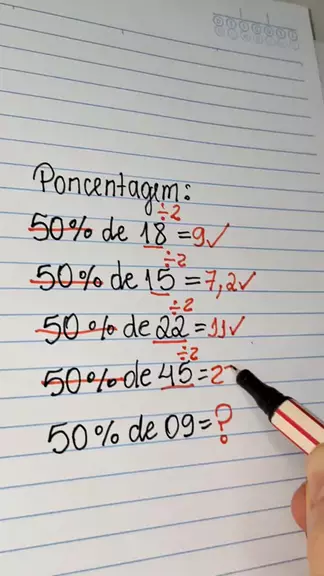 Porcentagem:
÷2
50% de 18 = 9✓
÷2
50% de 15 = 7,2✓
÷2
50% de 22 = 11✓
÷2
50% de 45 = 2
50% de 09 = ?